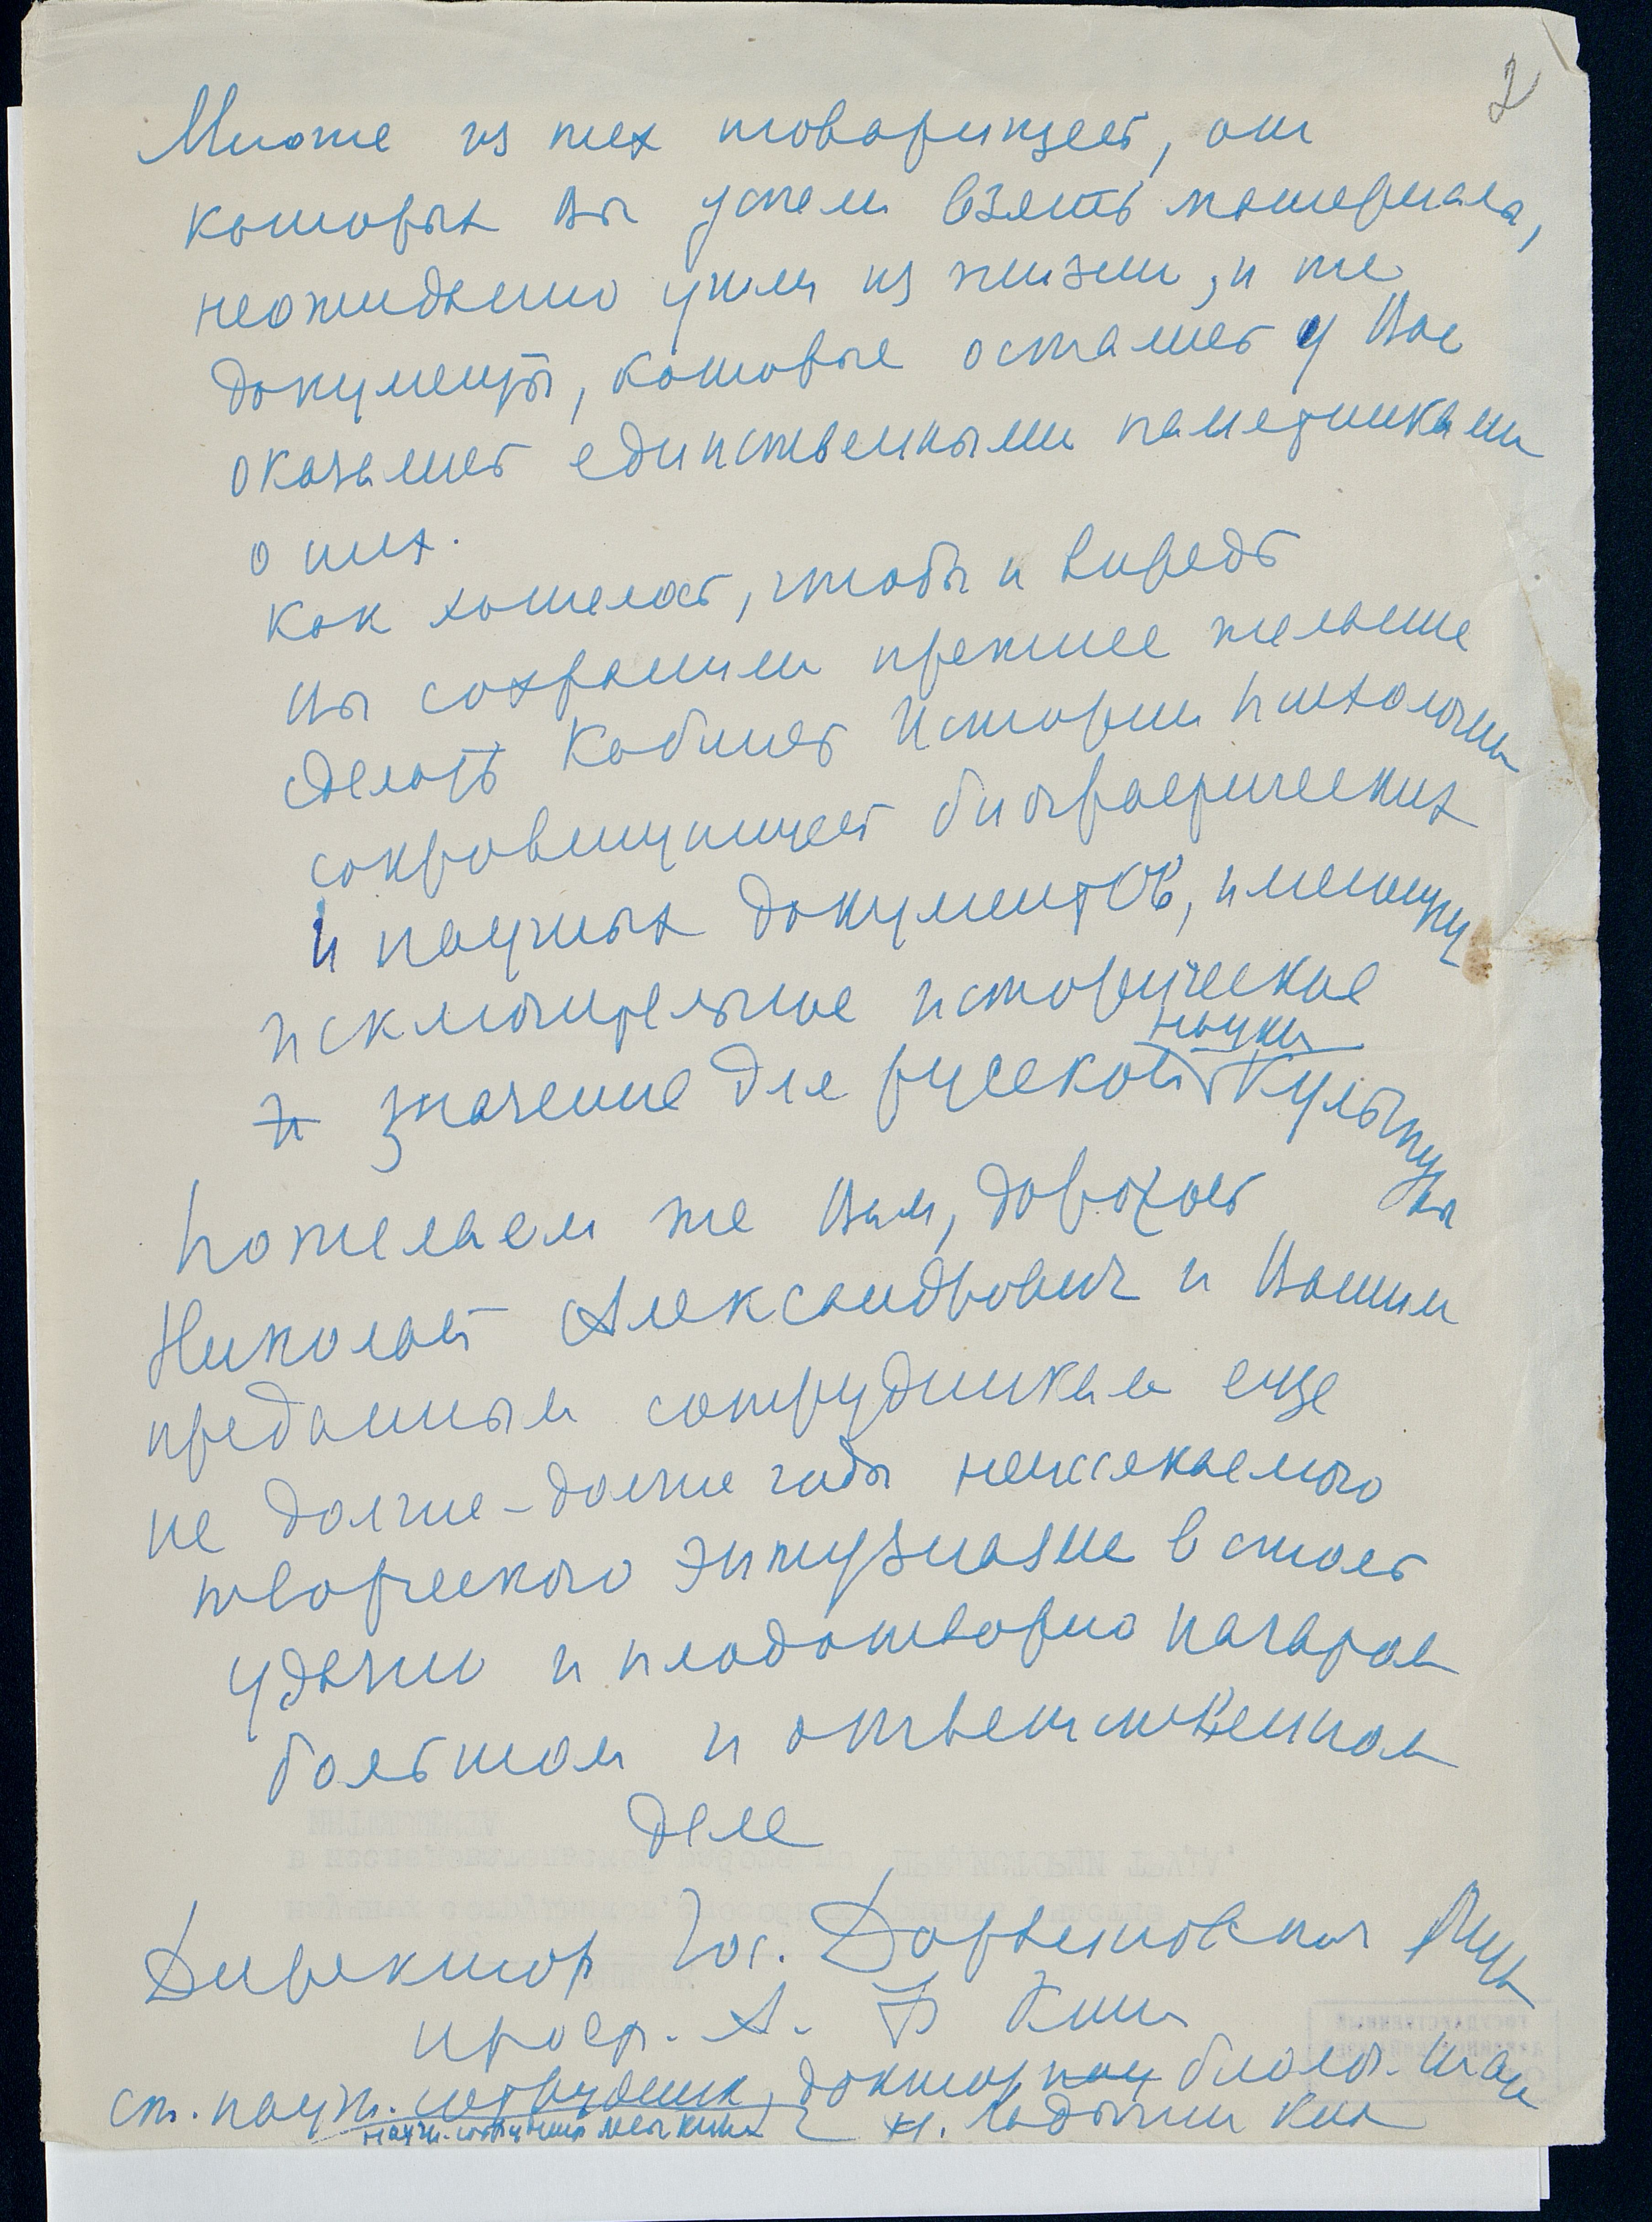 2
Многие из тех товарищей, от
которых Вы успели взять материалы,
неожиданно ушли из жизни, и те
документы, которые остались у Вас
оказались единственными памятниками
о них.
Как хотелось, чтобы и впредь
Вы сохранили прежнее желание
сделать Кабинет Истории Психологии
сокровищницей биографических
и научных документов, имеющих
исключительное историческое
науки
значение для русской культуры
Пожелаем же Вам, дорогой
Николай Александрович и Вашим
преданным сотрудникам еще
не долгие-долгие годы неиссякаемого
творческого энтузиазма в столь
удачно и плодотворно начатом
большом и ответственном
деле
Директор Гос. Дарвиновского Музея
проф. А. Ф. Котс
ст. научн. сотрудник, доктор биолог. наук
научн. сотрудник Н. Ладыгина Котс